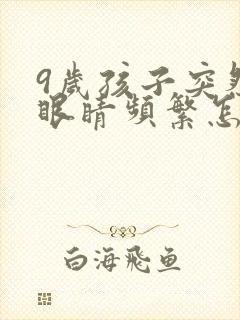 9歲孩子突然
眼睛頻繁怎
白海飛魚